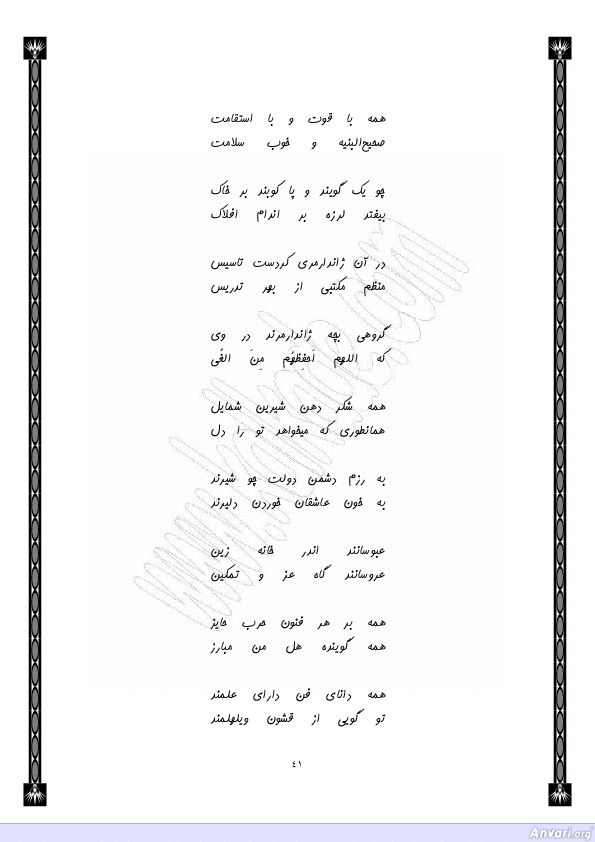 همه با قوت و با استقامت
صحیح‌البنیه و خوب سلامت
چو یک گویند و پا کوبند بر خاک
بیفتد لرزه بر اندام افلاک
در آن ژاندارمری کردست تاسیس
منظم مکتبی از بهر تدریس
گروهی بچه ژاندارمرند در وی
که اللهم اَحفِظهُم مِنَ الغُی
همه شکر دهن شیرین شمایل
همانطوری که میخواهد تو را دل
به رزم دشمن دولت چو شیرند
به خون عاشقان خوردن دلیرند
عبوسانند اندر خانه زین
عروسانند گاه عز و تمکین
همه بر هر فنون حرب حایز
همه گوینده هل من مبارز
همه دانای فن دارای علمند
تو گویی از قشون ویلهلمند
۴۱
Anvari.org